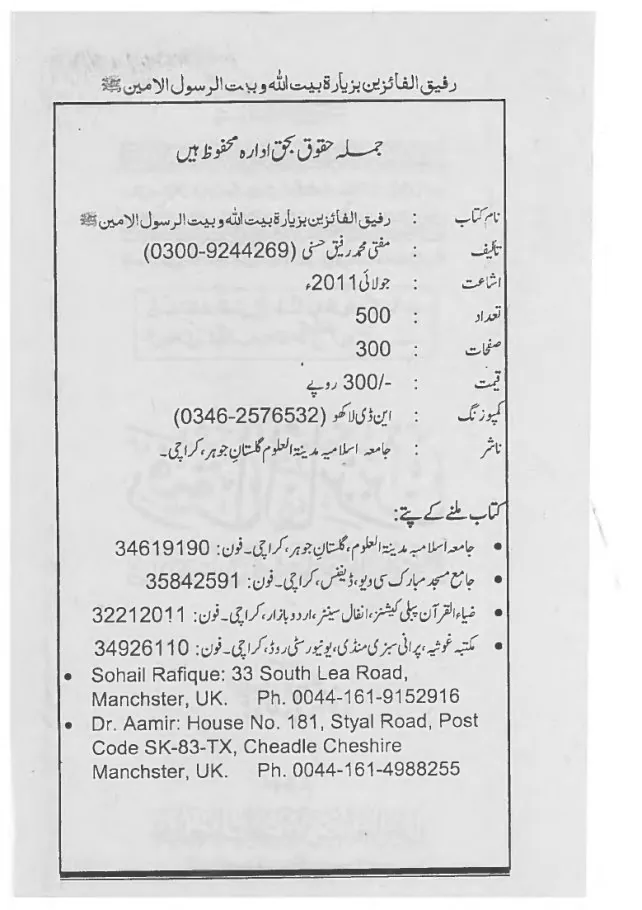 رفیق الفائزین بزیارۃ بیت اللہ و بیت الرسول الامین ﷺ
جملہ حقوق بحق ادارہ محفوظ ہیں
نام کتاب : رفیق الفائزین بزیارۃ بیت اللہ و بیت الرسول الامین ﷺ
تالیف : مفتی محمد رفیق حسنی (0300-9244269)
اشاعت : جولائی 2011ء
تعداد : 500
صفحات : 300
قیمت : 300/- روپے
کمپوزنگ : این ڈی لاکھو (0346-2576532)
ناشر : جامعہ اسلامیہ مدینۃ العلوم گلستانِ جوہر، کراچی۔
کتاب ملنے کے پتے:
• جامعہ اسلامیہ مدینۃ العلوم، گلستانِ جوہر، کراچی۔ فون: 34619190
• جامع مسجد مبارک سی ویو، ڈیفنس، کراچی۔ فون: 35842591
• ضیاء القرآن پبلی کیشنز، انفال سینٹر، اردو بازار، کراچی۔ فون: 32212011
• مکتبہ غوثیہ، پرانی سبزی منڈی، یونیورسٹی روڈ، کراچی۔ فون: 34926110
• Sohail Rafique: 33 South Lea Road,
Manchster, UK. Ph. 0044-161-9152916
• Dr. Aamir: House No. 181, Styal Road, Post
Code SK-83-TX, Cheadle Cheshire
Manchster, UK. Ph. 0044-161-4988255